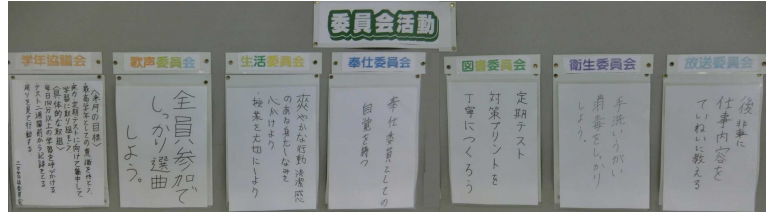 委員会活動
学年協議会
〈来月の目標〉
最高学年としての意識を持ち、
学習に取り組もう
〈具体的な取組〉
歌声委員会
全員参加で
しっかり選曲
しよう。
生活委員会
爽やかな行動、清潔感
のある身だしなみを
心がけよう
・授業を大切にしよう
奉仕委員会
奉仕委員としての
自覚を持つ
図書委員会
定期テスト
対策プリントを
丁寧につくろう
衛生委員会
手洗いうがい
消毒をしっかり
しよう、
放送委員会
後輩に
仕事内容を
ていねいに教える